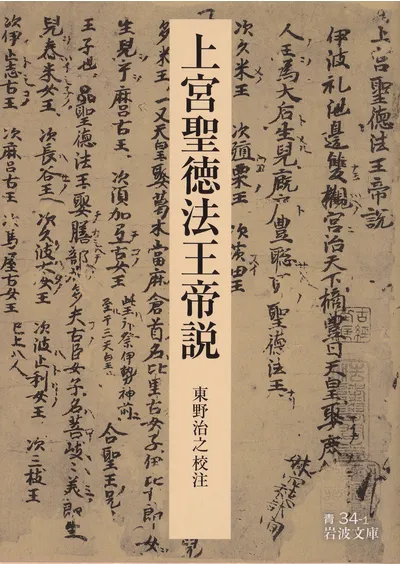 上宮聖徳法王帝説
東野治之校注
青 34-1
岩波文庫
上宮聖徳法王帝説
伊波礼池邊雙槻宮治天下橘豊日天皇娶庶
人王為大后生兒厩戸豊聡耳聖徳法王
次久米王 次殖栗王 次茨田王
多米王 又天皇娶葛木當麻倉首名比里古女子伊比古郎女
生兒乎麻呂古王 次須加弖古女王 此王拝祭伊勢神前至于三天皇也 合聖王兄
王子也 聖徳法王娶膳部加多夫古臣女子名菩岐々美郎生
兒舂米女王 次長谷王 次久波太女王 次波止利女王 次三枝王
次伊止志古王 次麻呂古王 次馬屋古女王 已上八人